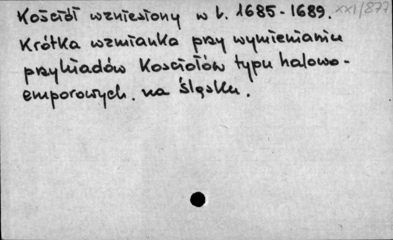 Kościół wzniesiony w l. 1685-1689. XXI/877
Krótka wzmianka przy wymienianiu
przykładów Kosciołów typu halowo-
emporowych. na Śląsku.